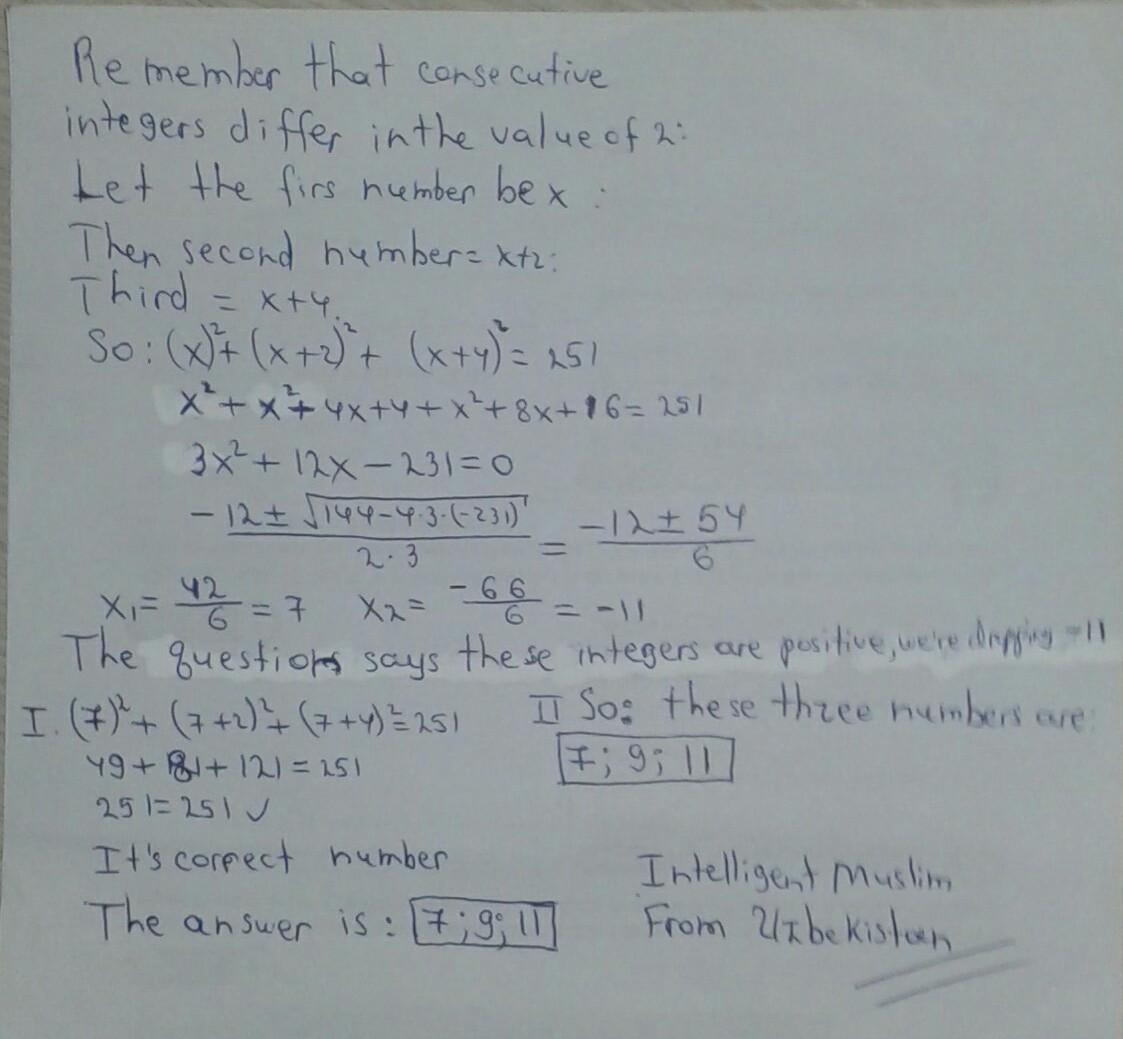 Remember that consecutive
integers differ in the value of 2:
Let the firs number be x :
Then second number = x+2:
Third = x+4.
So: (x)²+ (x+2)²+ (x+4)²= 251
x²+ x²+ 4x+4+ x²+ 8x+16= 251
3x²+ 12x - 231=0
(-12± √(144-4·3·(-231)))/(2·3) = (-12± 54)/6
x₁= 42/6 = 7 x₂= -66/6 = -11
The question says these integers are positive, we're dropping -11
I. (7)²+ (7+2)²+ (7+4)²=251 II So: these three numbers are:
49+ 81+ 121= 251 7; 9; 11
251= 251 ✓
It's correct number Intelligent Muslim
The answer is: 7; 9; 11 From Uzbekistan